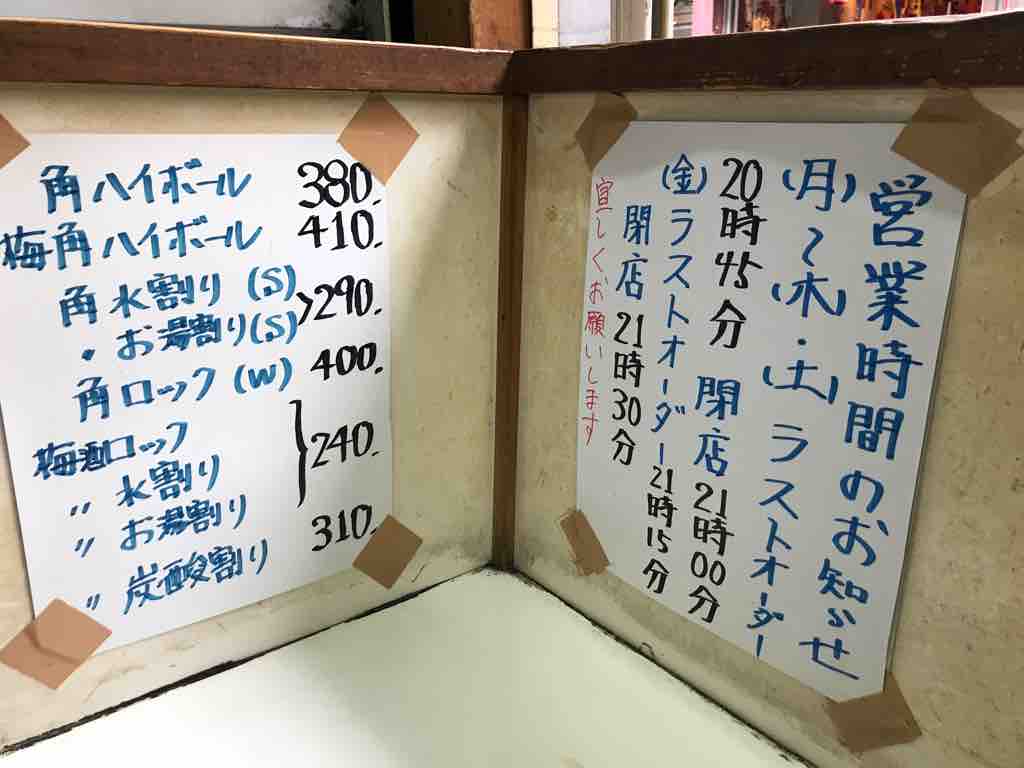 角ハイボール 380.-
梅角ハイボール 410.-
角水割り(S)
・お湯割り(S) >290.-
角ロック(W) 400.-
梅酒ロック
〃 水割り
〃 お湯割り } 240.-
〃 炭酸割り 310.-
営業時間のお知らせ
(月)~(木)・(土) ラストオーダー
20時45分 閉店 21時00分
(金) ラストオーダー 21時15分
閉店 21時30分
宜しくお願いします